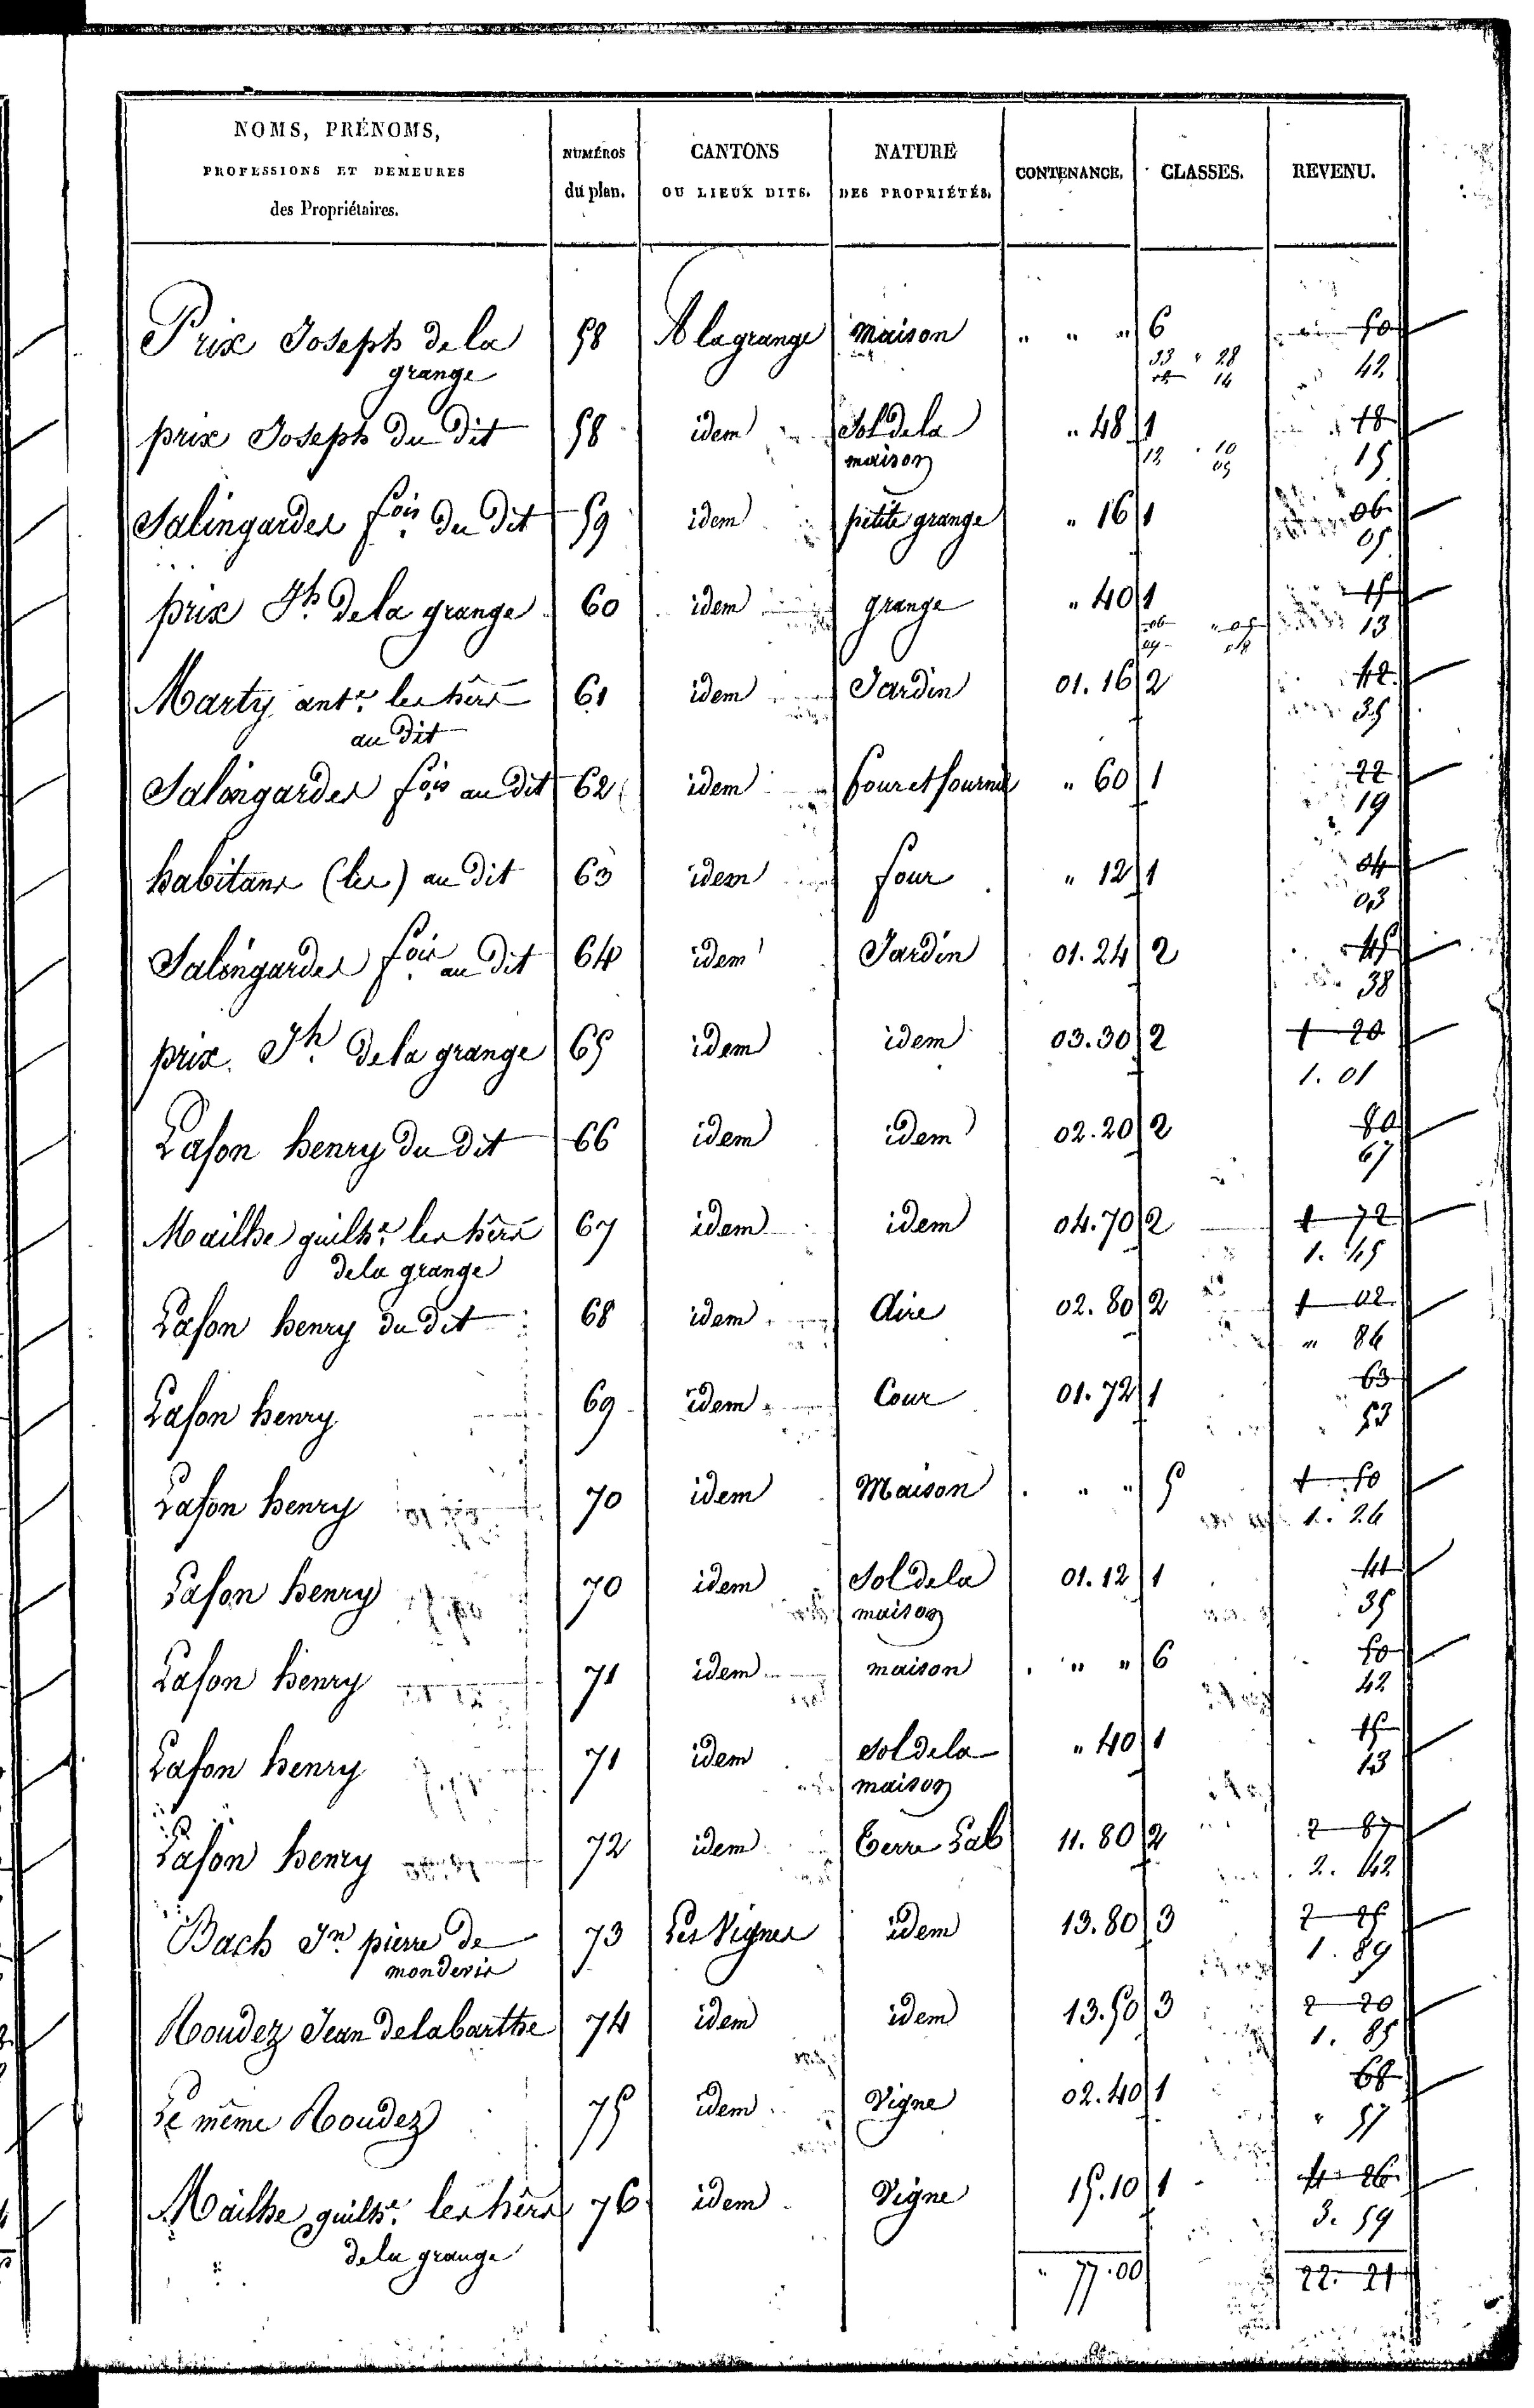 NOMS, PRÉNOMS,
PROFESSIONS ET DEMEURES
des Propriétaires.
NUMÉROS
du plan.
CANTONS
OU LIEUX DITS.
NATURE
DES PROPRIÉTÉS.
CONTENANCE.
CLASSES.
REVENU.
Prix Joseph de la 58 A la grange maison " " " 6 50
grange 33 " 28 42
14
prix Joseph du dit 58 idem Sol de la " 48 1 18
maison 12 10 15
05
Salingardes fois du dit 59 idem petite grange " 16 1 06
05
prix Jh de la grange 60 idem grange " 40 1 15
06 " 05 13
Marty ante les hérs 61 idem Jardin 01.16 2 42
au dit 35
Salingardes fois au dit 62 idem four et fournil " 60 1 22
19
habitans (les) au dit 63 idem four " 12 1 04
03
Salingardes fois au dit 64 idem Jardin 01.24 2 45
38
prix Jh de la grange 65 idem idem 03.30 2 1 20
1.01
Lafon henry du dit 66 idem idem 02.20 2 80
67
Mailhe guilhe les hérs 67 idem idem 04.70 2 1 72
de la grange 1.45
Lafon henry du dit 68 idem Aire 02.80 2 1 02
" 86
Lafon henry 69 idem Cour 01.72 1 63
53
Lafon henry 70 idem Maison " " 5 1 50
1.26
Lafon henry 70 idem Sol de la 01.12 1 41
maison 35
Lafon henry 71 idem maison " " 6 50
42
Lafon henry 71 idem Sol de la " 40 1 15
maison 13
Lafon henry 72 idem Terre Lab 11.80 2 2 87
2.42
Bach Jn pierre de 73 Les Vignes idem 13.80 3 2 25
monderis 1.89
Roudez Jean de labarthe 74 idem idem 13.50 3 2 20
1.85
Le même Roudez 75 idem Vigne 02.40 1 68
" 57
Mailhe guilhe les hérs 76 idem Vigne 15.10 1 4 26
de la grange 3.59
" 77.00 22.21